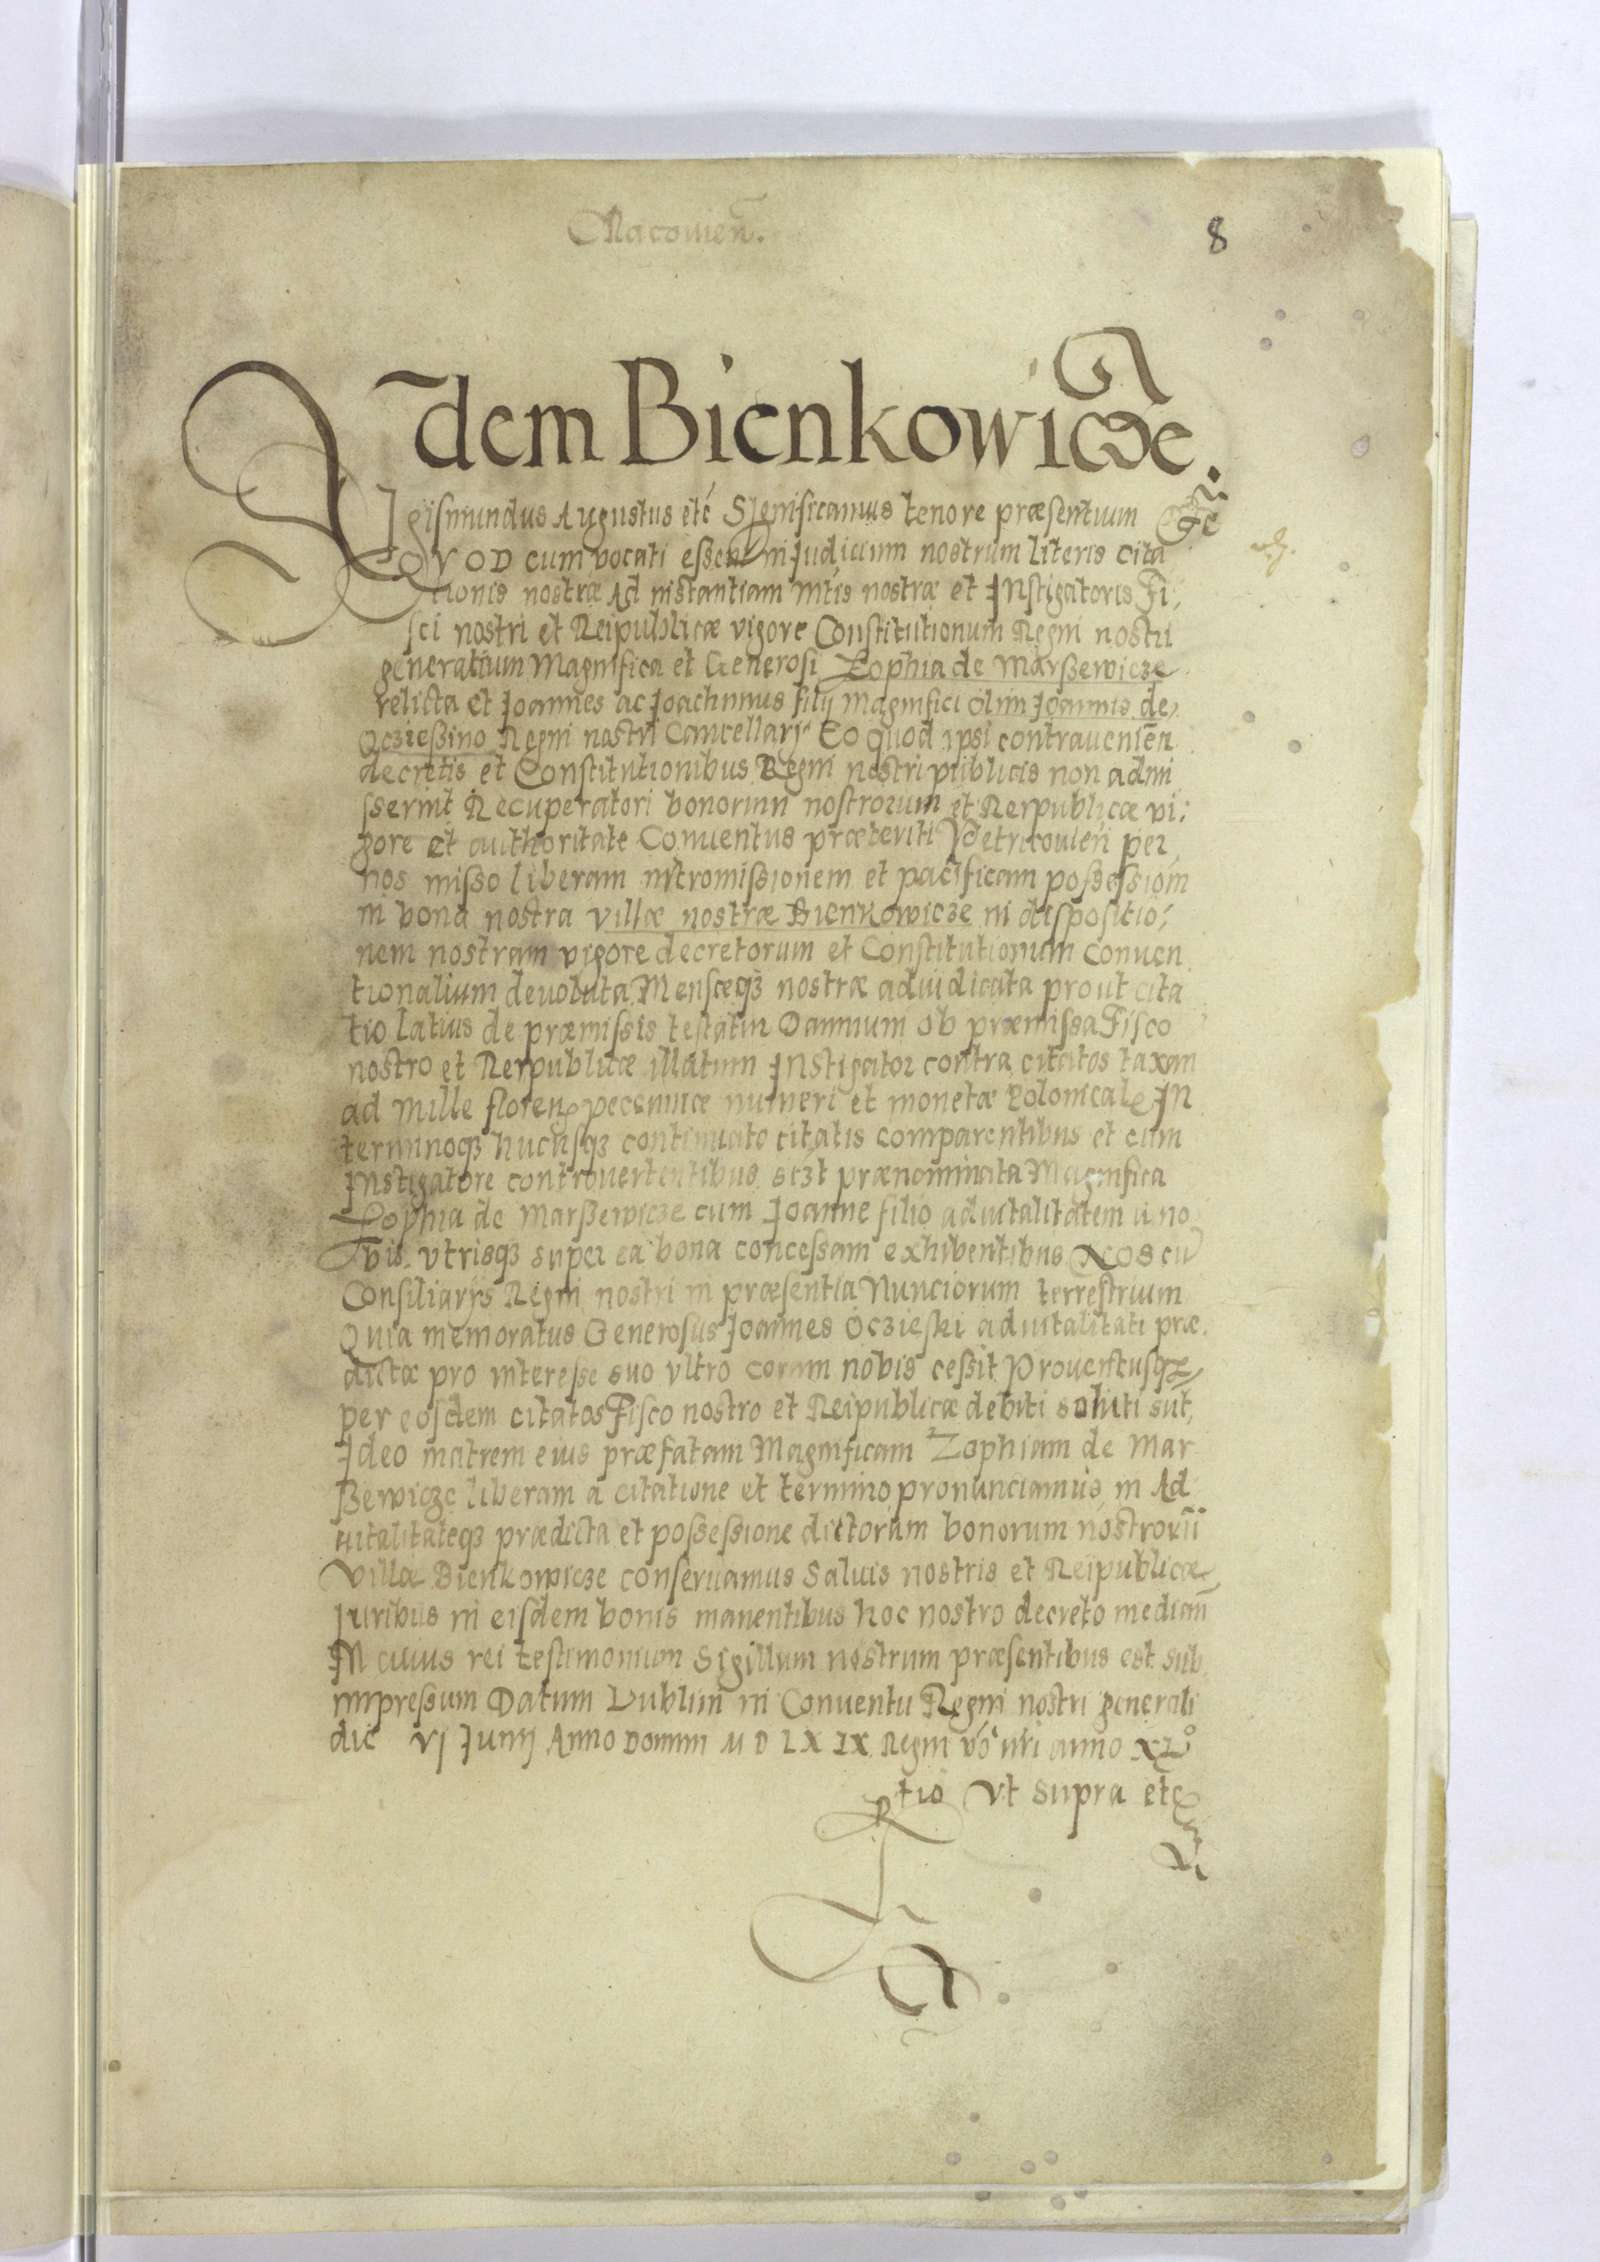 Macouien.
8
Idem Bienkowicze.
Sigismundus Augustus etc Significamus tenore præsentium Qe
QVOD cum vocati essent in Judicium nostrum literis cita
tionis nostræ Ad instantiam Mtis nostræ et INstigatoris Fi,
sci nostri et Reipublicæ vigore Constitutionum Regni nostri
generalium Magnifica et Generosi Zophia de Marßewicze
relicta et Joannes ac Joachimus filij Magnifici olim Joannis de
Oczießino Regni nostri Cancellarij Eo quod ipsi contravenien
decretis et Constitutionibus Regni nostri publicis non admi
sserint Recuperatori bonorum nostrorum et Reipublicæ vi:
gore et authoritate Conuentus præteriti Petricouien per
nos misso liberam intromissionem et pacificam possession
in bona nostra villæ nostræ Bienkowicze in dispositio:
nem nostram vigore decretorum et Constitutionum Conuen
tionalium deuoluta Mensæqz nostræ adiudicata prout cita
tio latius de præmissis testatur Damnum ob præmissa Fisco
nostro et Reipublicæ illatum INstigator contra citatos taxan
ad Mille floren pecuniæ numeri et monetæ Polonicale IN
terminoqz hucusqz continuato citatis comparentibus et cum
INstigatore controuertentibus sczt prænominata Magnifica
Zophia de Marßewicze cum Joanne filio aduitalitatem a no
bis vtrisqz super ea bona concessam exhibentibus NOS cu
Consiliarijs Regni nostri in præsentia Nunciorum terrestrium
Quia memoratus Generosus Joannes Oczieski aduitalitati præ
dictæ pro interesse suo vltro coram nobis cessit Prouentusqz
per eosdem citatos Fisco nostro et Reipublicæ debiti soluti sut,
Ideo matrem eius præfatam Magnificam Zophiam de Mar
ßewicze liberam a citatione et termino pronunciamus, in Ad
uitalitateqz prædicta et possessione dictorum bonorum nostroru
Villæ Bienkowicze conseruamus Saluis nostris et Reipublicæ
Juribus in eisdem bonis manentibus hoc nostro decreto median
IN cuius rei testimonium Sigillum nostrum præsentibus est sub
impressum Datum Lublini in Conuentu Regni nostri generali
die VI Junij Anno Domini MDLXIX Regni vo nri anno XLo
Rtio Vt supra etc